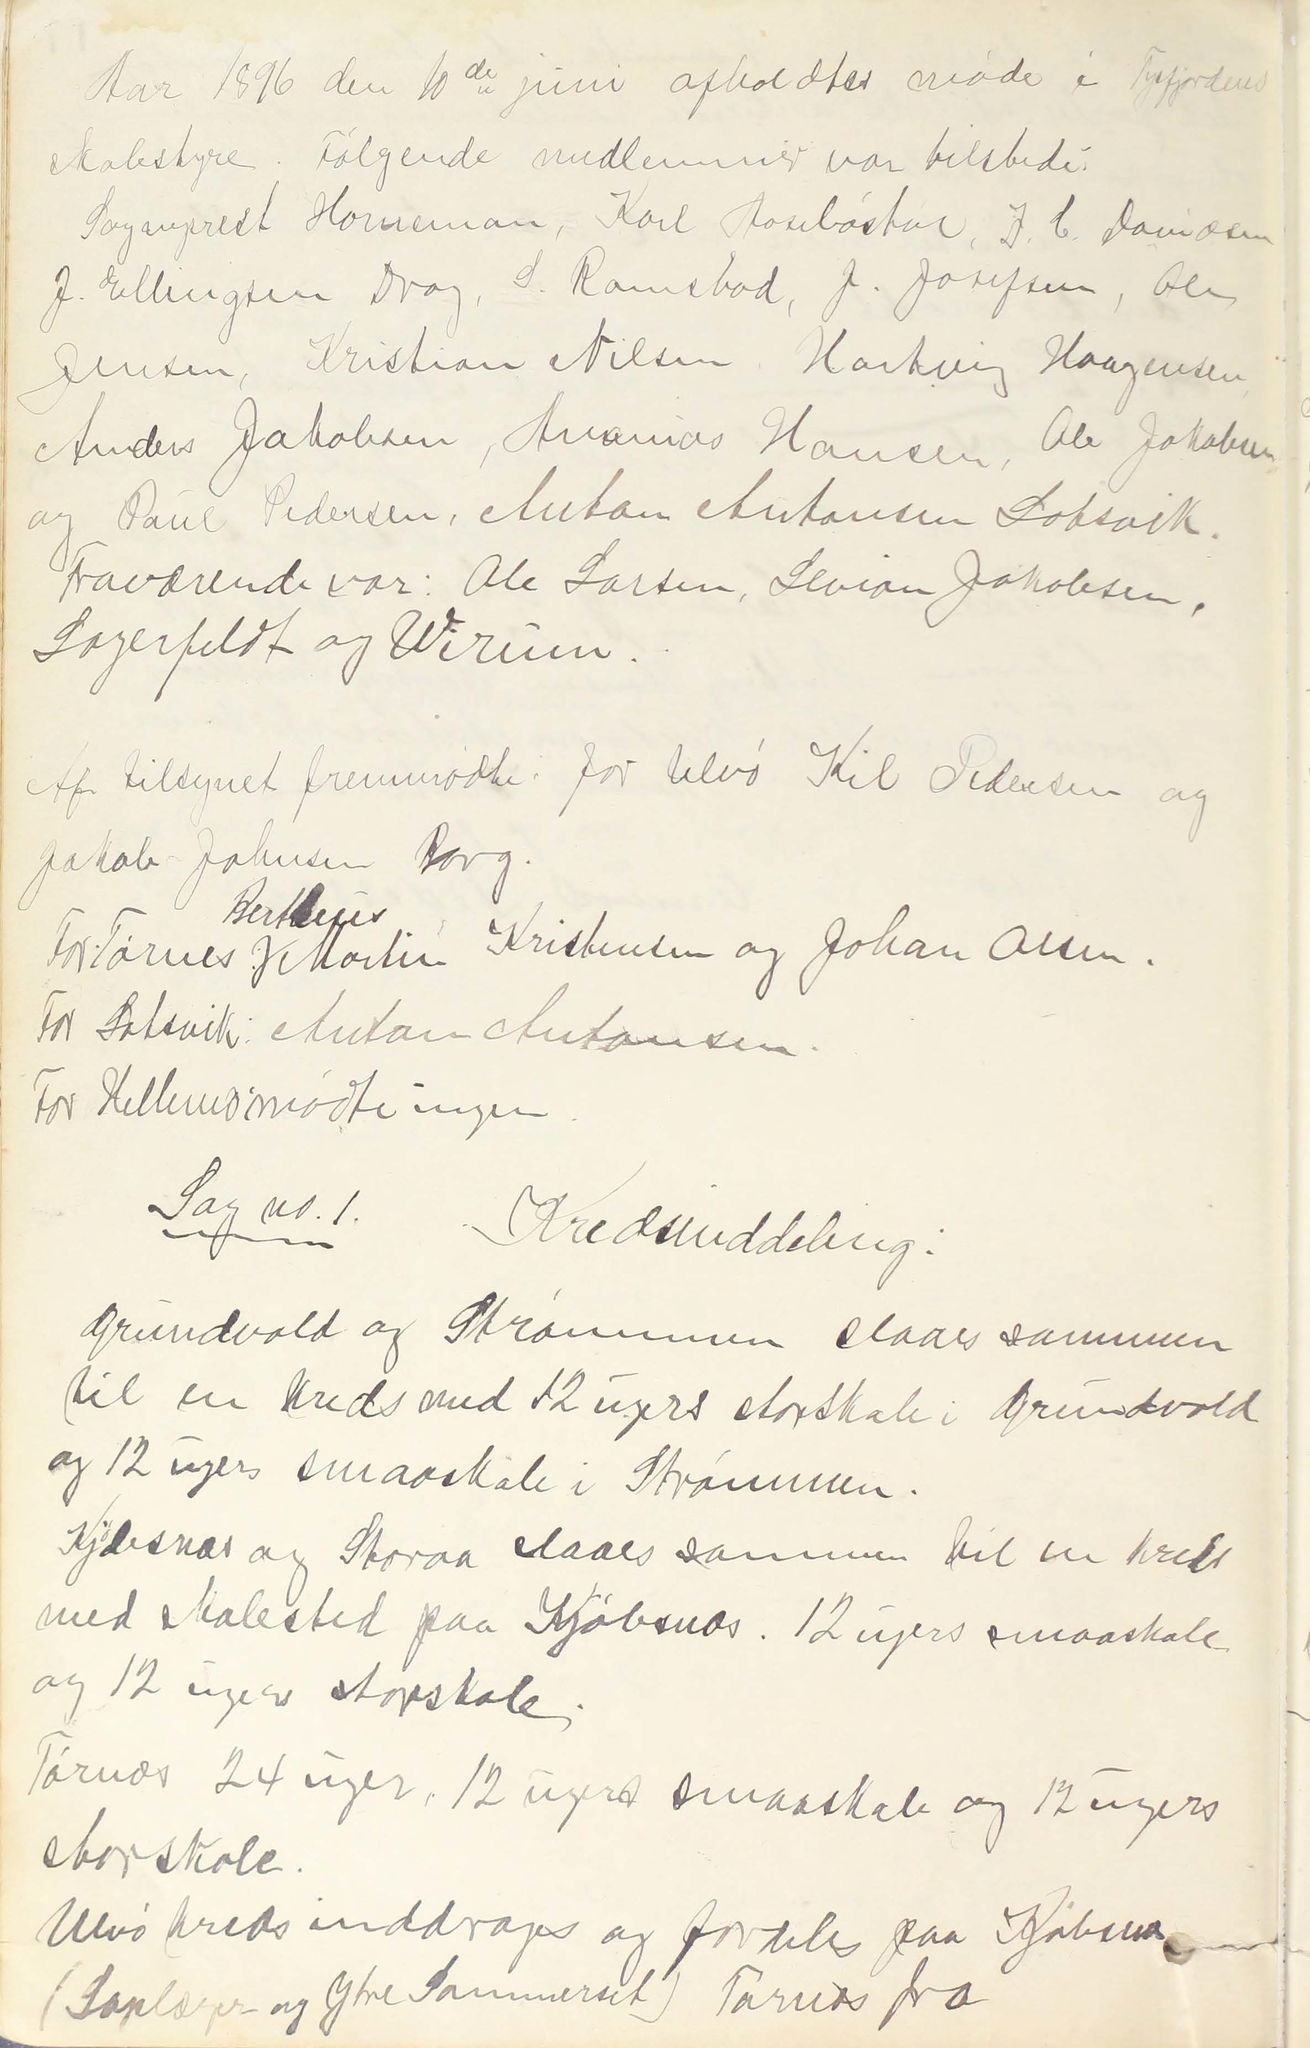 Aar 1896 den 10de juni afholdtes møde i Tysfjordens
skolestyre. Følgende medlemmer var tilstede:
Sogneprest Horneman, Karl J. C. Davidsen
J. Ellingsen Drag, S. Ramsbad, J. Josefsen, Ole
Jensen, Kristian Nilsen Hartvig Haagensen,
Anders Jakobsen, Ananias Hansen, Ole Jakobsen
og Paul Pedersen, Anton Antonsen Sotsvik.
Fraværende var: Ole Larsen, Jakobsen,
Lagerfeldt og Wirum.
Af tilsynet fremmødte: for Ulvø Kil Pedersen og
Jakob Johnsen Borg.
Bertheus
For Tørnes Martin Kristensen og Johan Olsen.
For Sotsvik: Anton Antonsen.
For Hellemo mødte ingen.
Sag no. 1. Kredsinddeling:
Grundvold og Strømmen slaaes sammen
til en kreds med 12 ugers storskole i Grundvold
og 12 ugers smaaskole i Strømmen.
Kjøbsnæs og Storaa slaaes sammen til en kreds
med skolested paa Kjøbsnæs. 12 ugers smaaskole
og 12 ugers storskole.
Tørnæs 24 uger, 12 ugers smaaskole og 12 ugers
storskole.
Ulvø kreds inddrages og fordeles paa Kjøbsnæs
( og Ytre Sommerset) Tørnæs fra